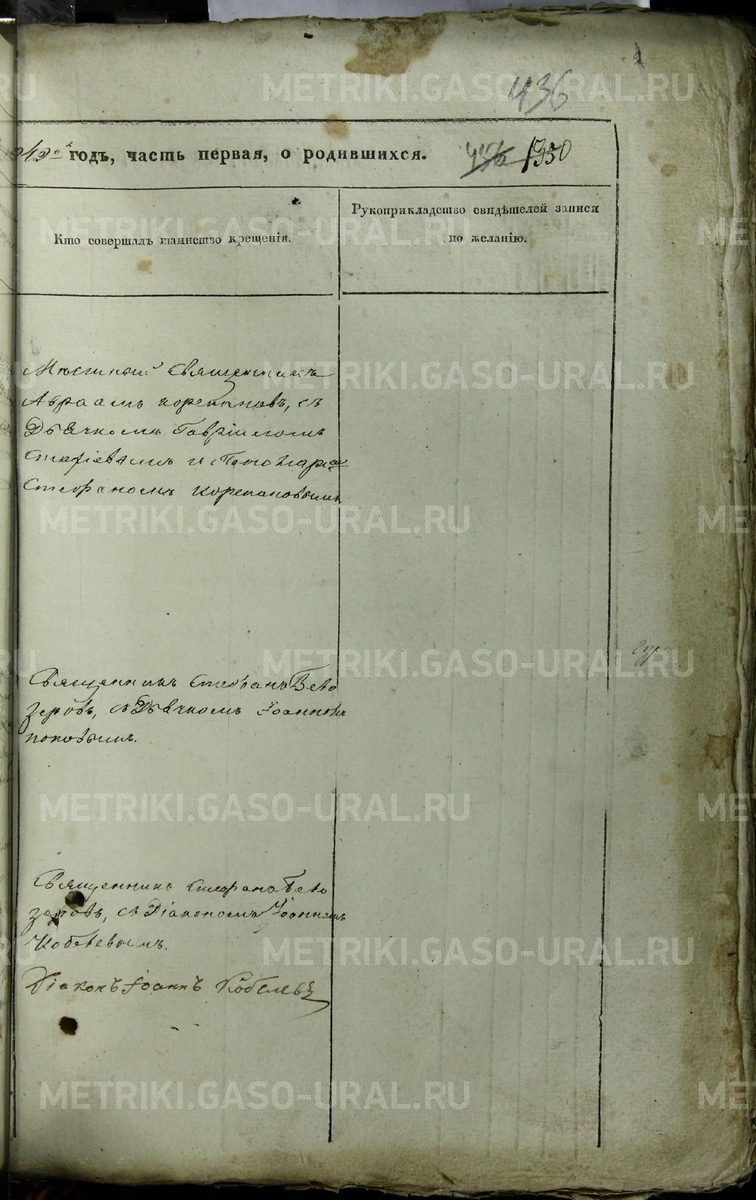 436
годъ, часть первая, о родившихся. 1350
Кто совершалъ таинство крещенія.
Рукоприкладство свидѣтелей записи
по желанію.
Мѣстный Священникъ
Авраамъ Корепановъ, съ
Дьячкомъ Гавріиломъ
и Пономаремъ
Стефаномъ Корепановымъ
Священникъ Стефанъ Бело
зеровъ, съ Дьячкомъ Іоанномъ
Поповымъ.
Священникъ Стефанъ Бело
зеровъ, съ Діакономъ Іоанномъ
Кобелевымъ.
Діаконъ Іоаннъ Кобелевъ
METRIKI.GASO-URAL.RU